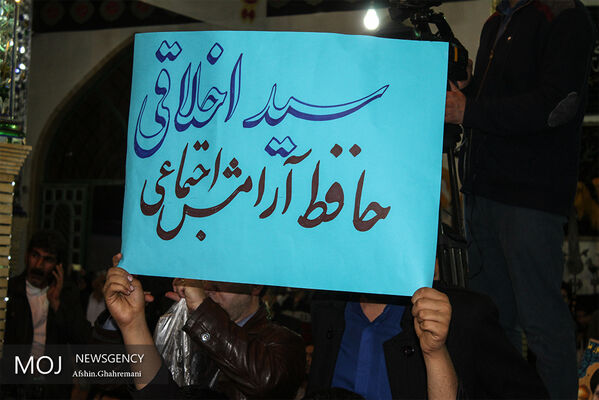 سید اخلاقی
حافظ آرامش اجتماعی
MOJ NEWSGENCY
Afshin.Ghahremani